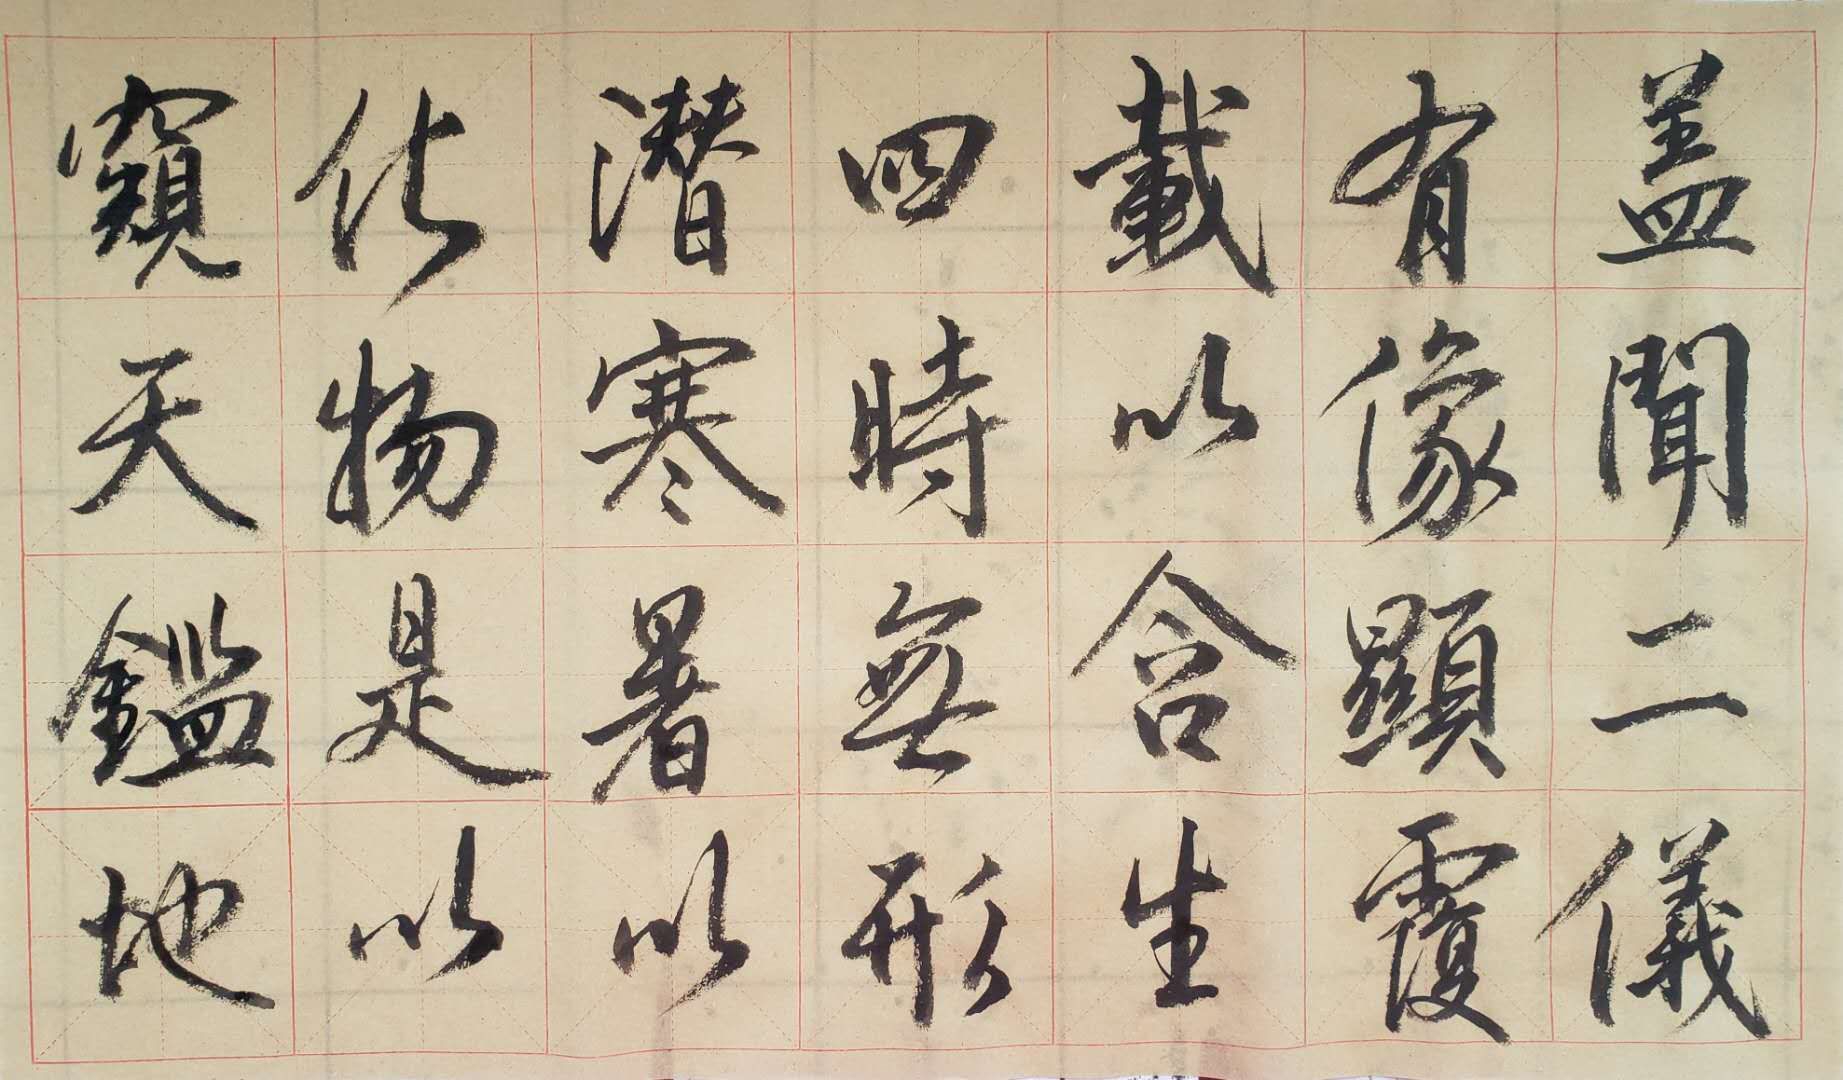 盖聞二儀
有像顯覆
載以含生
四時無形
潛寒暑以
化物是以
窺天鑑地